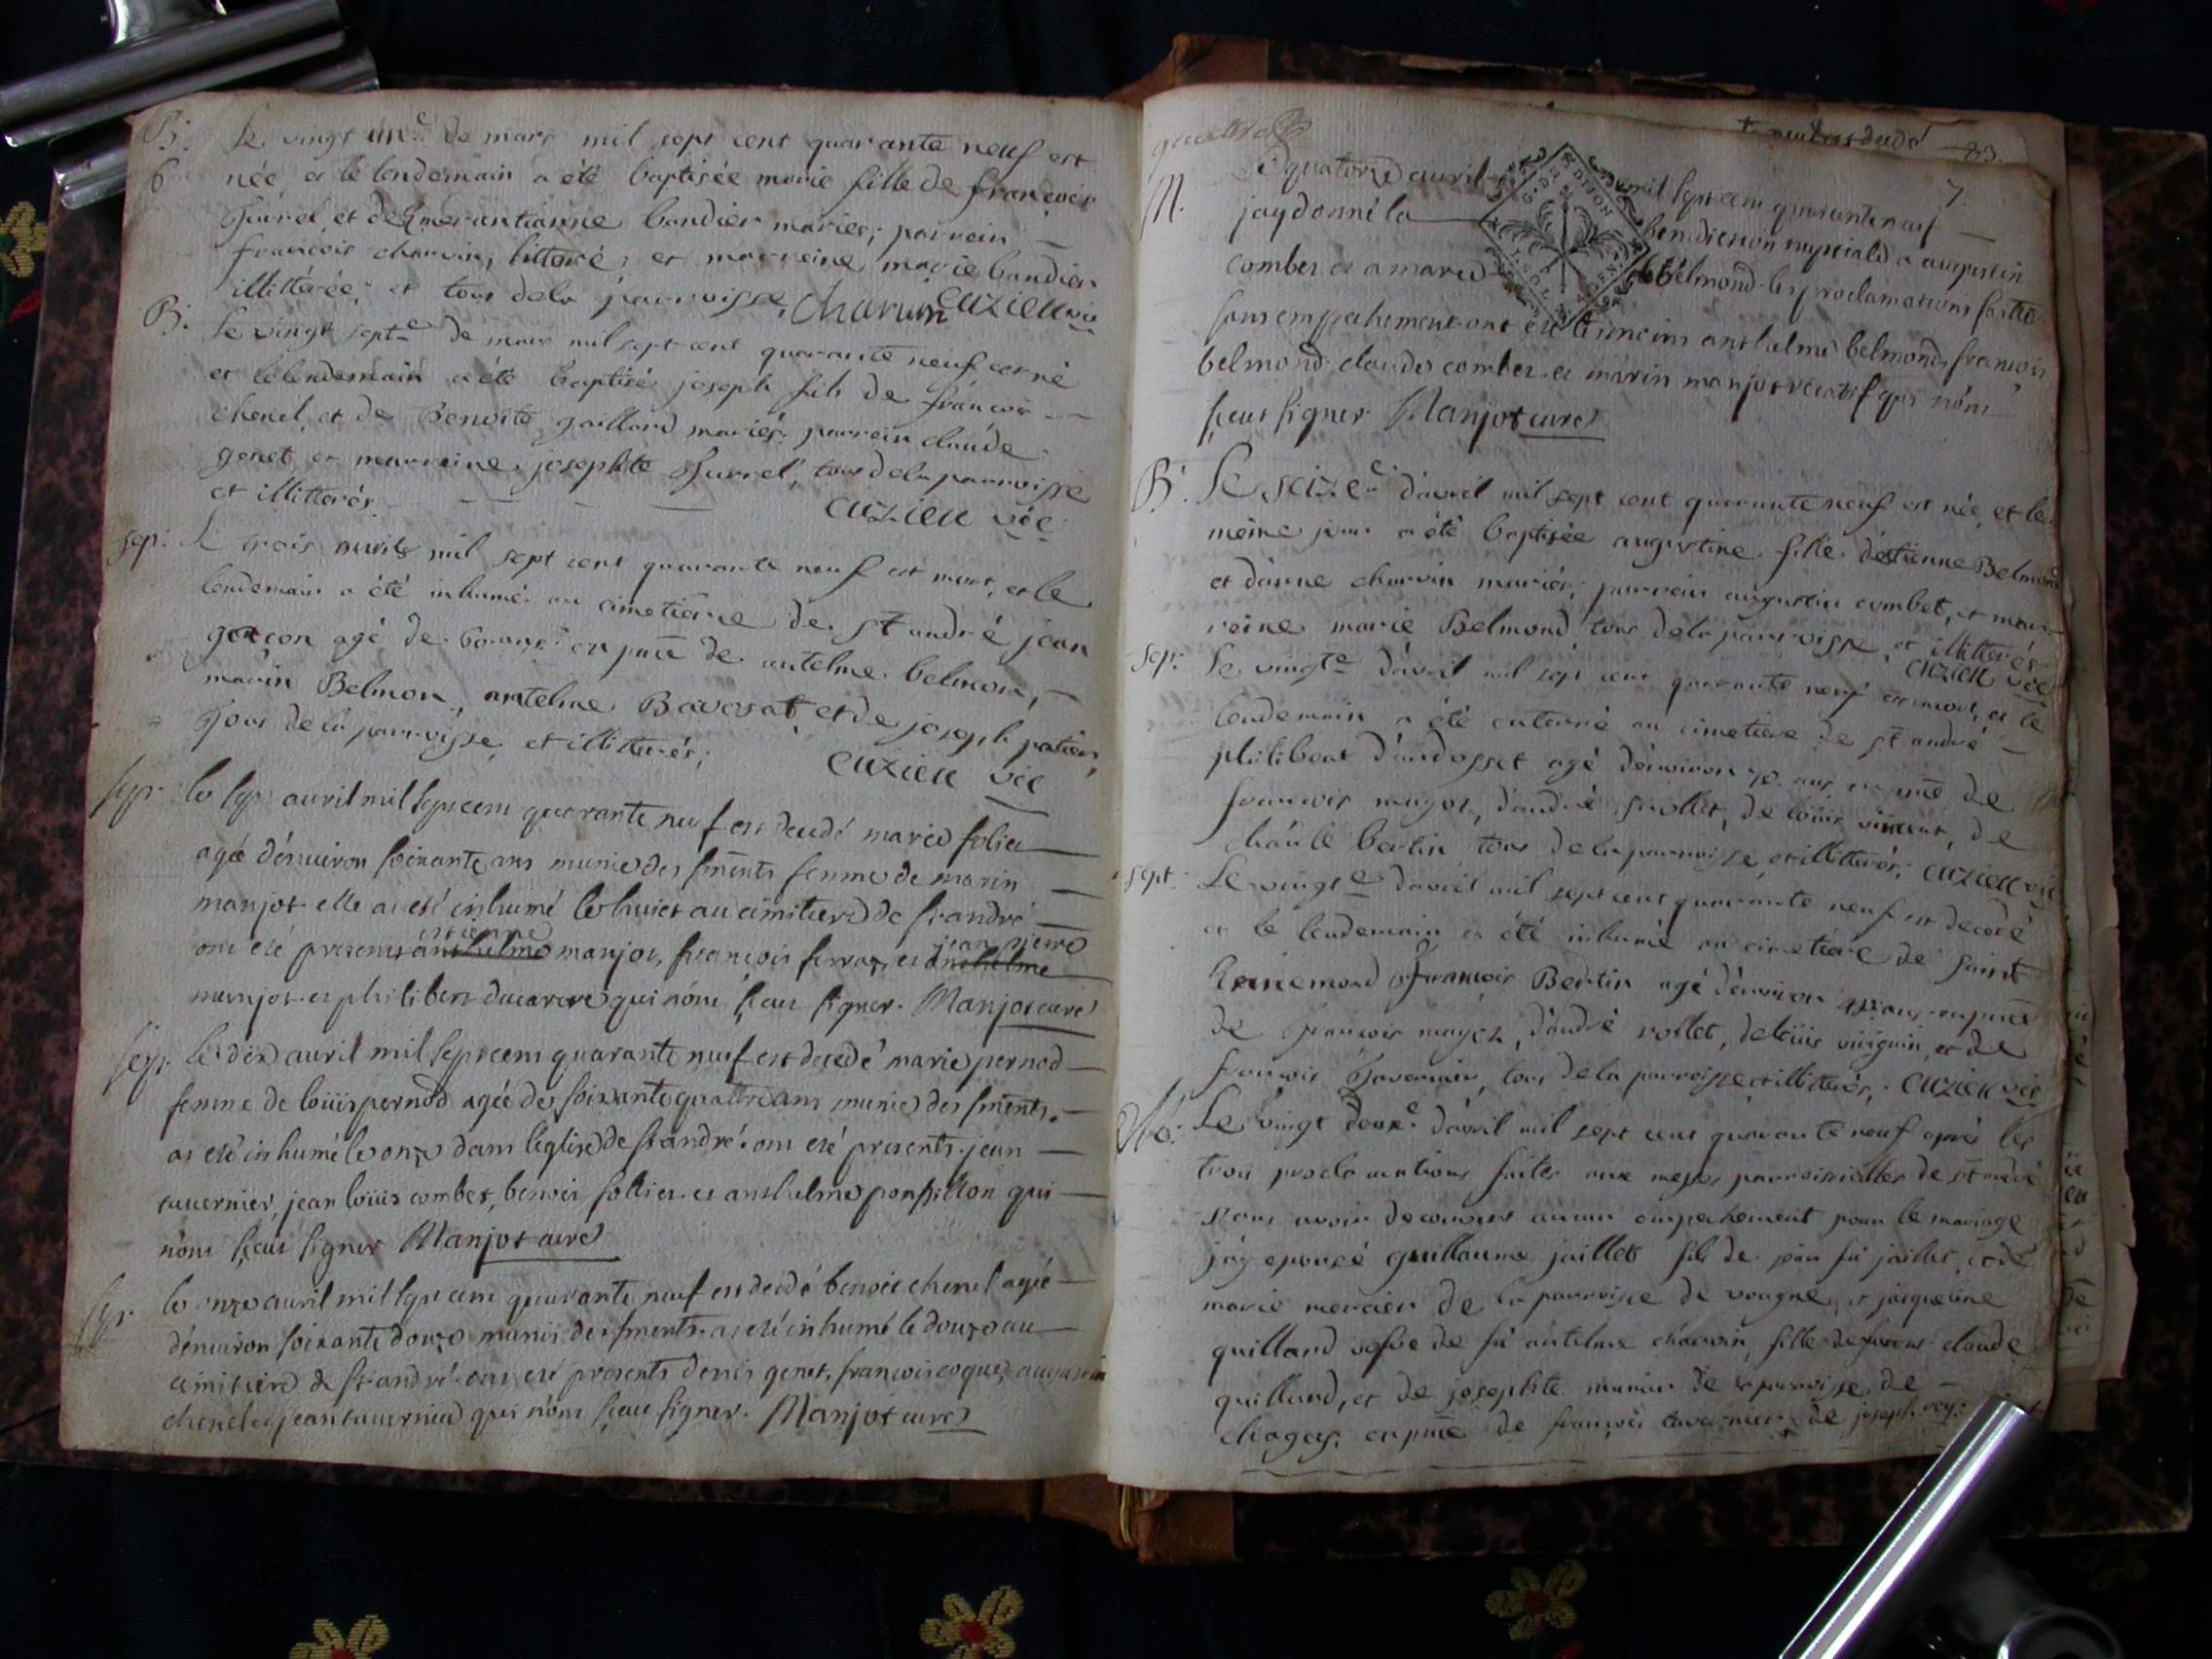 B. Le vingt un.e de mars mil sept cent quarante neuf est
6 née, et le lendemain a été baptisée marie fille de françois
et de Emerantianne bandier mariés; parrein
françois charvin, litteré, et marreine marie bandier
illitérée; et tous de la parroisse, Charvin Cuzieu vic
B. Le vingt septe de mars mil sept cent quarante neuf est né
et le lendemain a été baptisé joseph fils de françois
chenel, et de Benoite gaillard mariés. parrein claude
genet et marreine josephte tous de la parroisse
et illitterés. Cuzieu vic
sep: Le trois avril mil sept cent quarante neuf est mort, et le
lendemain a été inhumé au cimetierre de st andré jean
garçon agé de en pnce de antelme belmon,
marin Belmon, antelme Bavosat et de joseph
tous de la parroisse et illitterés; Cuzieu vic
sep. le sept avril mil sept cent quarante neuf est decedé marie folier
agée d'environ soixante ans munie des sments femme de marin
manjot elle a esté inhumé le huict au cimitiere de st andré
estienne jean pierre
ont esté presents anthelme manjot, françois et anthelme
manjot et philibert qui n'ont sçeut signer. Manjot curé
sep. le dix avril mil sept cent quarante neuf est decedé marie pernod
femme de loüis pernod agée de soixante quattre ans munie des sments
at esté inhumé le onze dans l'eglise de st andré. ont esté presents jean
tavernier, jean loüis combet, benoit follier et anthelme qui
n'ont sçeut signer Manjot curé
sep. le onze avril mil sept cent quarante neuf est decedé benoit chenel agé
d'environ soixante douze munis des sments. at esté inhumé le douze au
cimitiere de st andré. ont esté presents denis genet, françois coquet, augustin
chenel et jean tavernier qui n'ont sçeut signer. Manjot curé
83.
7.
M. Le quatorze avril mil sept cent quarante neuf
jay donné la benediction nuptiale a augustin
combet et a marie belmond. les proclamations faittes
sans empechement ont été temoins anthelme belmond, françois
belmond claude combet et marin manjot qui n'ont
sçeut signer Manjot curé
B. Le seize.e d'avril mil sept cent quarante neuf est née, et le
même jour a été baptisée augustine fille d'estienne Belmond
et d'anne charvin mariés; parrein augustin combet, et mar-
reine marie Belmond tous de la parroisse, et illitterés.
Cuzieu vic
sep: Le vingte d'avril mil sept cent quarante neuf est mort, et le
lendemain a été enterré au cimetiere de st andré
philibert d'andosset agé d'environ 70 ans en pnce de
françois d'andré rollet, de loüis vincent, de
bertin tous de la parroisse, et illitterés; Cuzieu vic
sept. Le vingte d'avril mil sept cent quarante neuf est decedé
et le lendemain a été inhumé au cimetiere de saint
françois Bertin agé d'environ ans en pnce
de françois d'andré rollet, de loüis et de
françois Tavernier, tous de la parroisse et illitterés; Cuzieu vic
Le vingt deux.e d'avril mil sept cent quarante neuf après les
trois proclamations faites aux messes parroissialles de st andré
sans avoir decouvert aucun empechement pour le mariage
j'ay epousé guillaume jaillet fils de jean fu jaillet, et de
marie mercier de la parroisse de vougne, et jacqueline
guilland vefve de fû antelme charvin, fille de claude
guilland, et de josephte munier de la parroisse de
en pnce de françois tavernier, de joseph